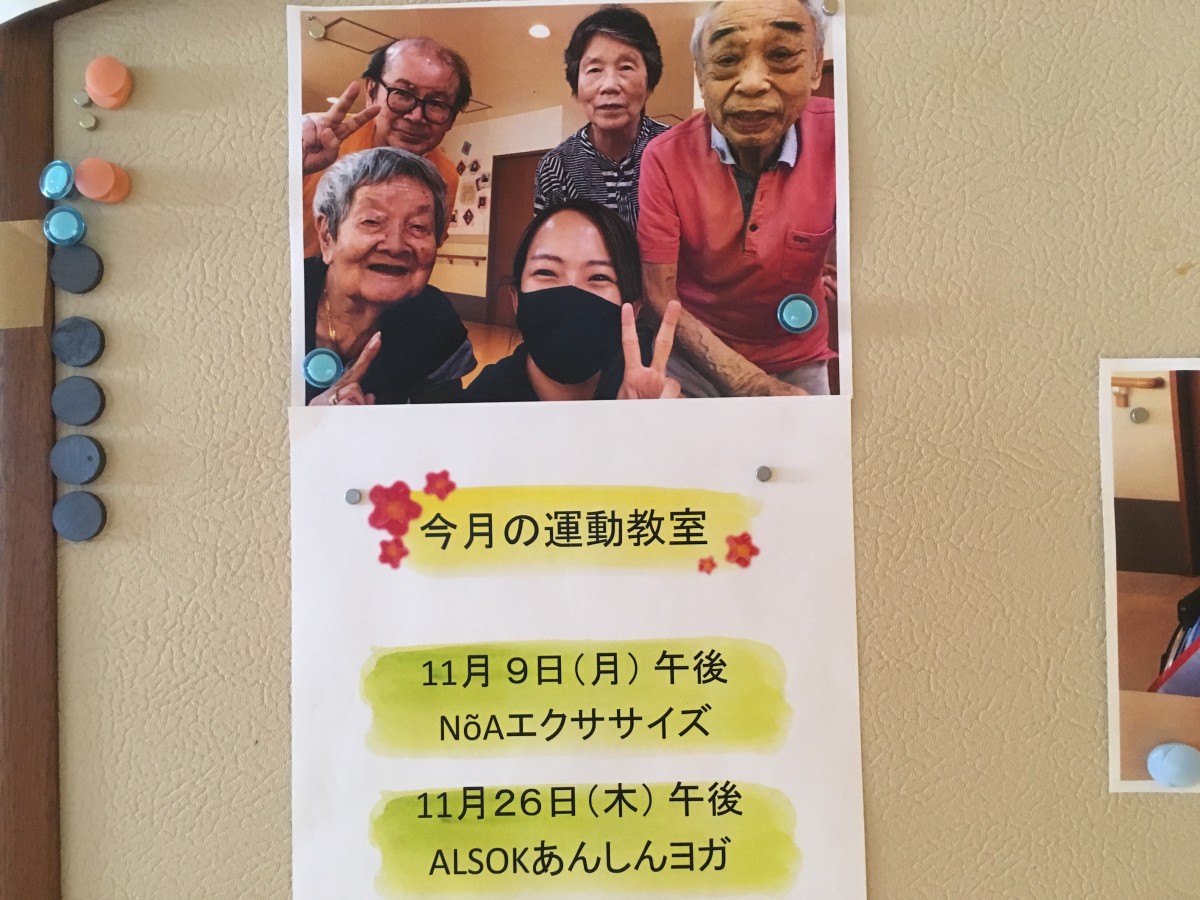 今月の運動教室
11月 9日(月) 午後
NõAエクササイズ
11月26日(木) 午後
ALSOKあんしんヨガ